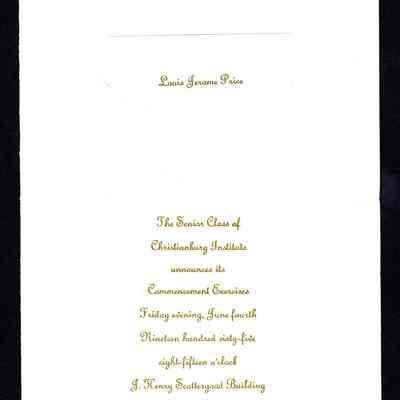 Louis Jerome Price
The Senior Class of
Christianburg Institute
announces its
Commencement Exercises
Friday evening, June fourth
Nineteen hundred sixty-five
eight-fifteen o'clock
J. Henry Scattergood Building